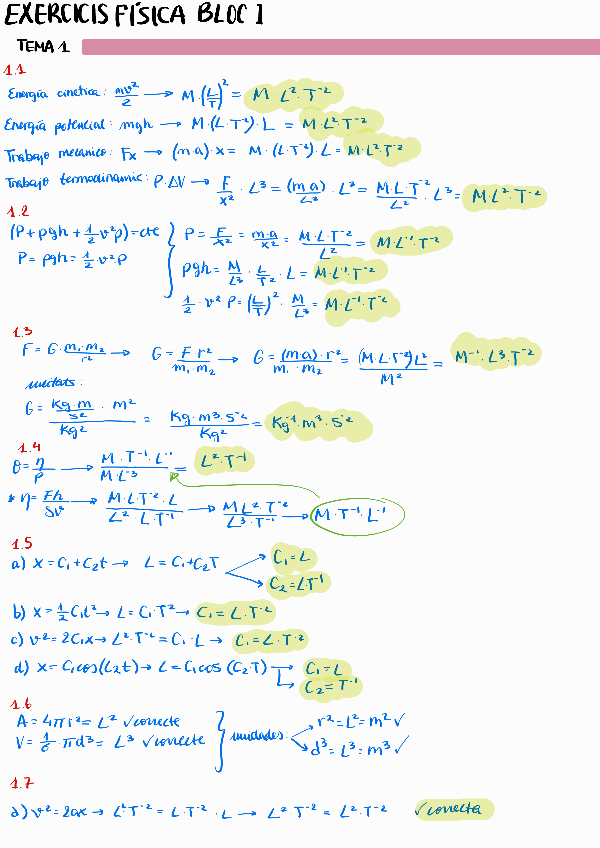 EXERCICIS FÍSICA BLOC 1
TEMA 1
1.1
Energía cinética: mv²/2 → M·(L/T)² = M·L²·T⁻²
Energía potencial: mgh → M·(L·T⁻²)·L = M·L²·T⁻²
Trabajo mecánico: Fx → (m·a)·x = M·(L·T⁻²)·L = M·L²·T⁻²
Trabajo termodinamic: P·ΔV → F/x² · L³ = (m·a)/L² · L³ = M·L·T⁻²/L² · L³ = M·L²·T⁻²
1.2
(P + ρgh + 1/2 v²ρ) = cte
P = ρgh = 1/2 v²ρ
P = F/x² = m·a/x² = M·L·T⁻²/L² = M·L⁻¹·T⁻²
ρgh = M/L³ · L/T² · L = M·L⁻¹·T⁻²
1/2 · v² ρ = (L/T)² · M/L³ = M·L⁻¹·T⁻²
1.3
F = G·m₁·m₂/r² → G = F r²/m₁·m₂ → G = (m·a)·r²/m₁·m₂ = (M·L·T⁻²)L²/M² = M⁻¹·L³·T⁻²
unitats:
G = Kg·m/s² · m²/Kg² = Kg·m³·s⁻²/Kg² = Kg⁻¹·m³·s⁻²
1.4
θ = η/ρ → M·T⁻¹·L⁻¹/M·L⁻³ = L²·T⁻¹
* η = Fh/Sv → M·L·T⁻²·L/L²·L·T⁻¹ → M L²·T⁻²/L³·T⁻¹ → M·T⁻¹·L⁻¹
1.5
a) x = C₁ + C₂t → L = C₁ + C₂T
C₁ = L
C₂ = L·T⁻¹
b) x = 1/2 C₁t² → L = C₁·T² → C₁ = L·T⁻²
c) v² = 2C₁x → L²·T⁻² = C₁·L → C₁ = L·T⁻²
d) x = C₁cos(C₂t) → L = C₁cos(C₂T) → C₁ = L
C₂ = T⁻¹
1.6
A = 4πr² = L² ✓correcte
V = 1/6 · πd³ = L³ ✓correcte
unidades:
r² = L² = m² ✓
d³ = L³ = m³ ✓
1.7
a) v² = 2ax → L²·T⁻² = L·T⁻²·L → L²T⁻² = L²·T⁻² ✓correcta